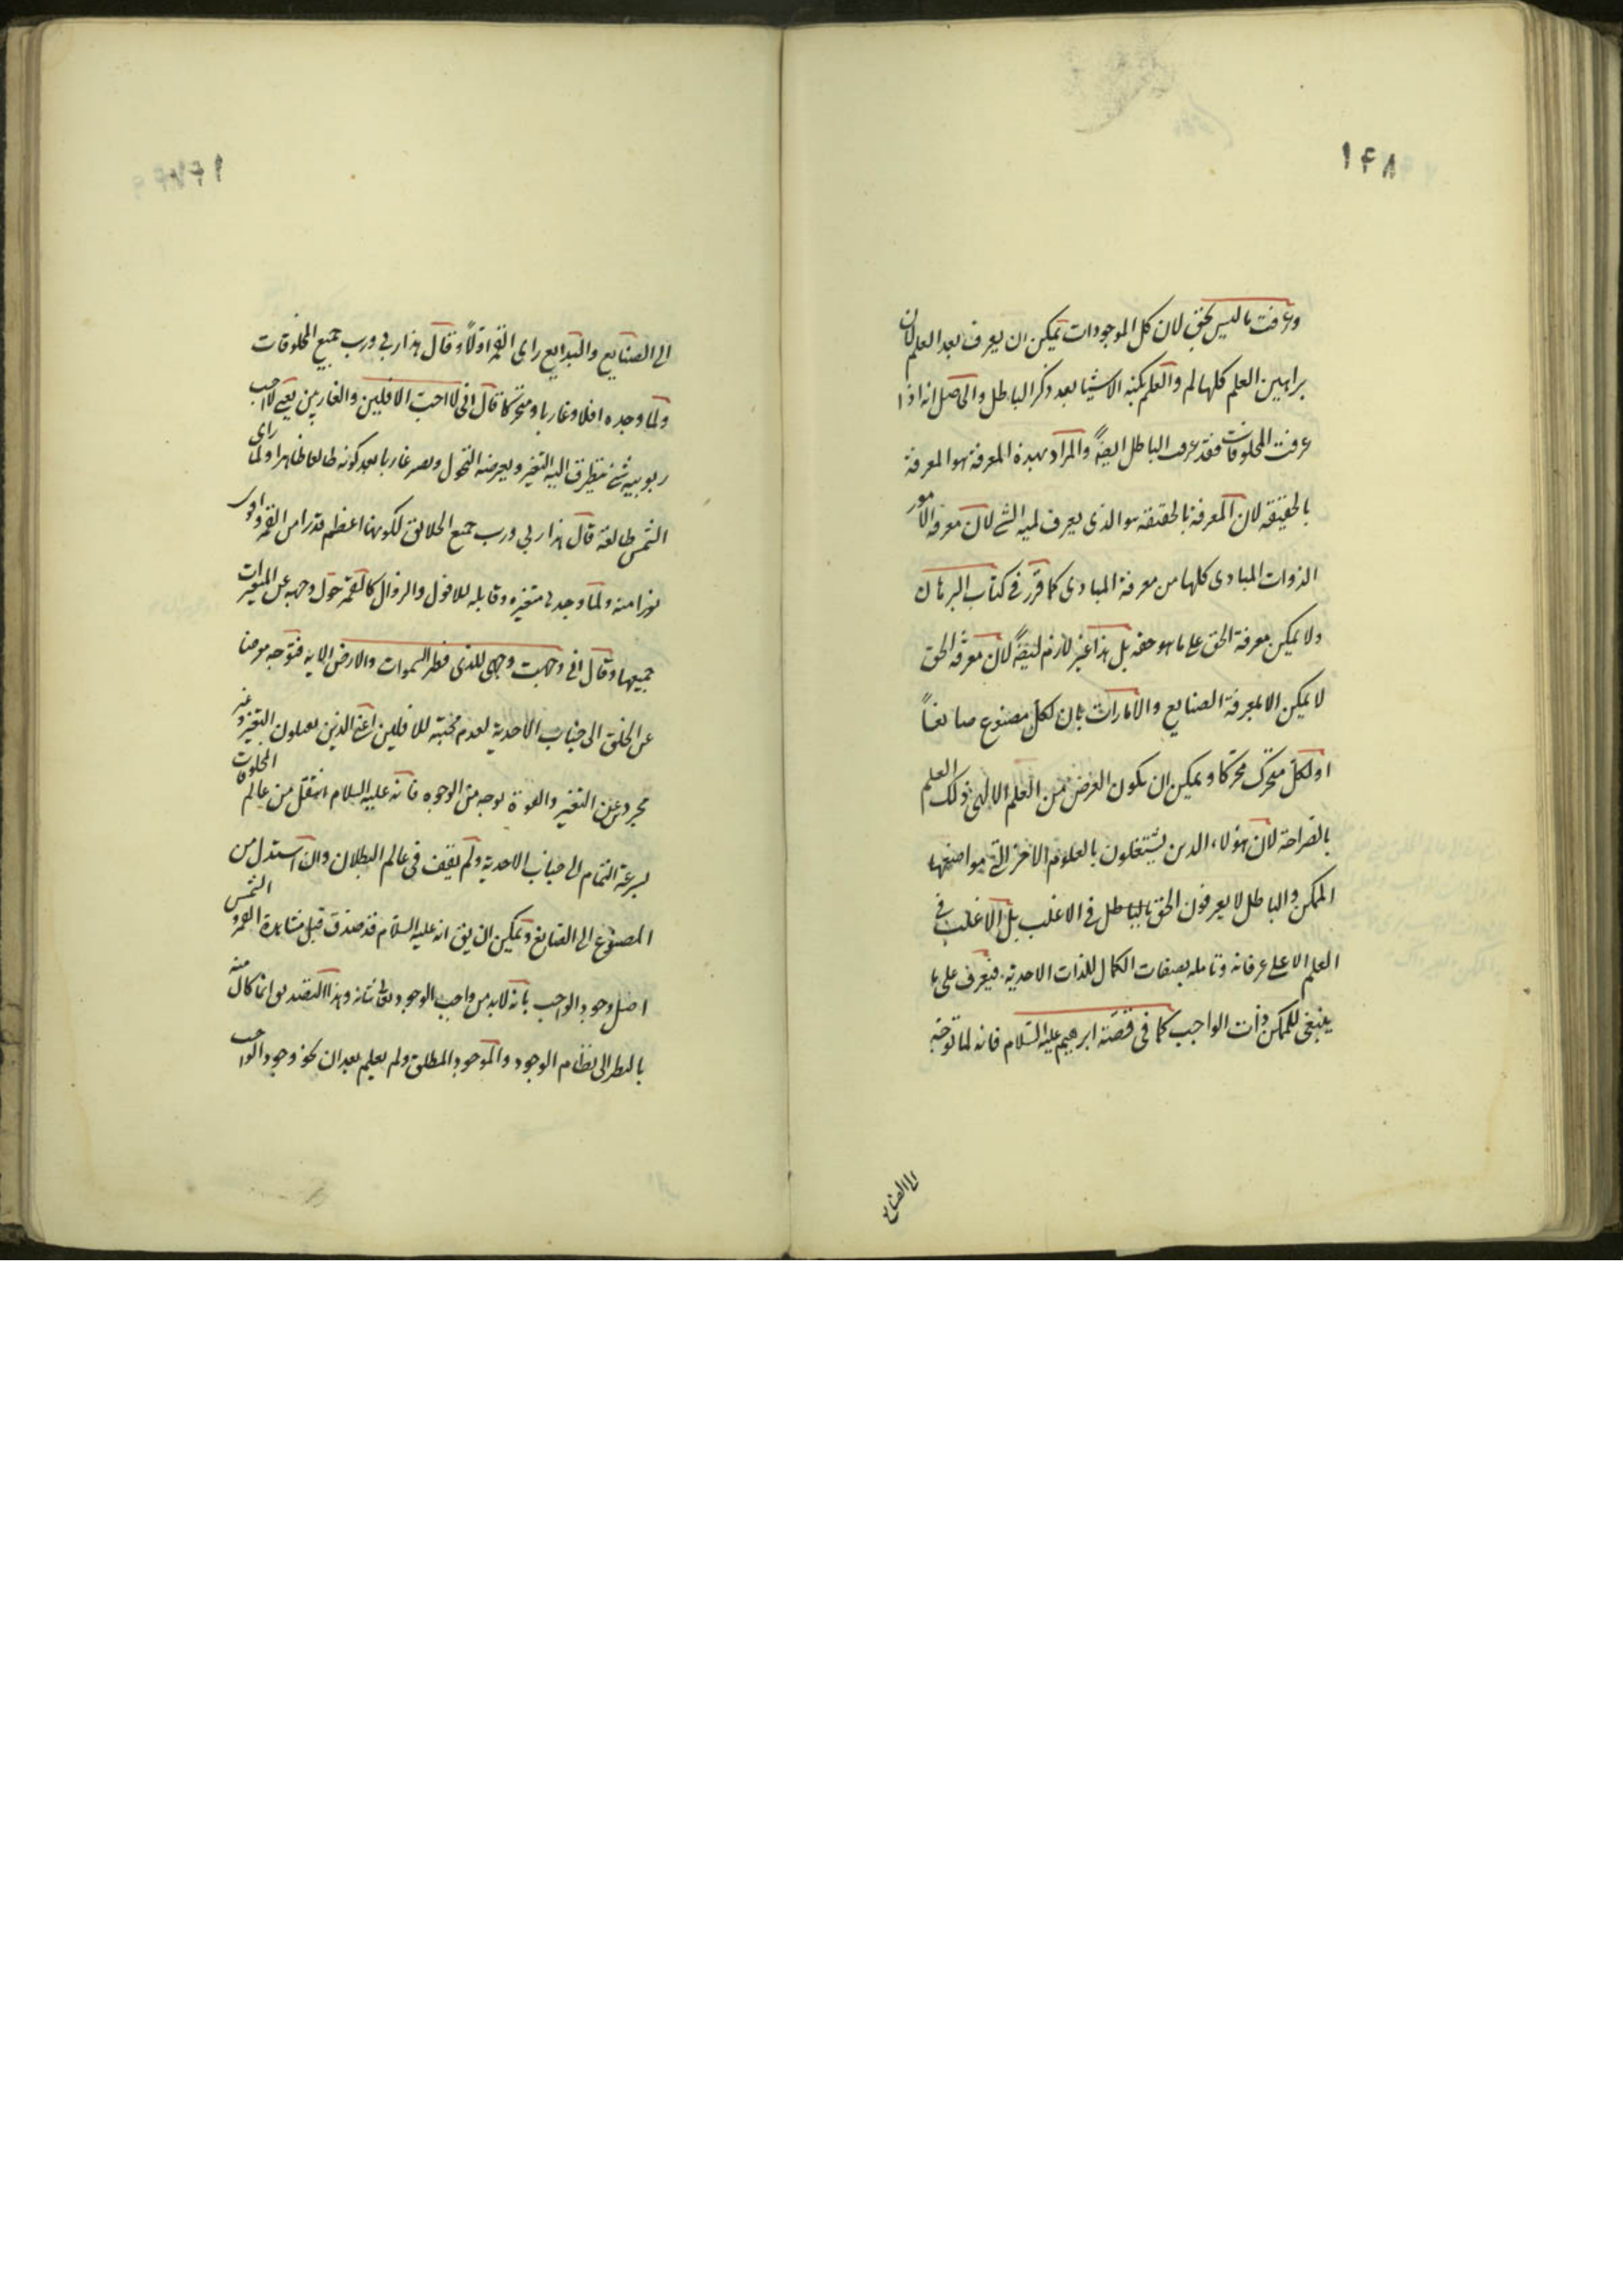 ١٤٨
وعرفت ما ليس بحق لان كل الموجودات يمكن ان يعرف بعد العلم لان
براهين العلم كلها لم والعلم بكنه الاشيا بعد ذكر الباطل والحاصل انه اذا
عرفت المخلوقات فقد عرفت الباطل ايضاً والمراد بهذه المعرفة هو المعرفة
بالحقيقة لان المعرفة بالحقيقة هو الذى يعرف لمية الشئ لان معرفة الامور
الذوات المبادى كلها من معرفة المبادى كما قرر فى كتاب البرهان
ولا يمكن معرفة الحق على ما هو حقه بل هذا غير لازم ايضاً لان معرفة الحق
لا يمكن الا بمعرفة الصنايع والامارات بان لكل مصنوع صانعاً
او لكل متحرك محركا ويمكن ان يكون الغرض من العلم الالهى ذلك العلم
بالصراحة لان هؤلاء الذين يشتغلون بالعلوم الاخر التى مواضيعها
الممكن والباطل لا يعرفون الحق بالباطل فى الاغلب بل الاغلب فى
العلم الاعلى عرفانه وتامله بصفات الكمال للذات الاحدية فيعرف على ما
ينبغى للممكن ذات الواجب كما فى قصة ابرهيم عليه السلام فانه لما توجه
الى الصنايع
الى الصنايع والبدايع راى القمر اولاً وقال هذا ربى ورب جميع المخلوقات
ولما وجده افلا وغاربا ومتحركا قال انى لا احب الافلين والغاربين يعنى لا احب
ربوبيه شئ يتطرق اليه التغير ويعرضه التحول ويصير غاربا بعد كونه طالعا ظاهرا ولما راى
الشمس طالعة قال هذا ربى ورب جميع الخلايق لكونها اعظم قدرا من القمر واوفر
نورا منه ولما وجدها متغيره وقابله للافول والزوال كالقمر حول وجهه عن المتغيرات
جميعها وقال انى وجهت وجهى للذى فطر السموات والارض الاية فتوجه معرضا
عن الخلق الى جناب الاحدية لعدم محبته للافلين اعنى الذين يقبلون التغير وغير
مجرد عن التغير والقوة بوجه من الوجوه فانه عليه السلام انتقل من عالم المخلوقات
بسرعة التمام الى جناب الاحدية ولم يقف فى عالم البطلان وان استدل من
المصنوع الى الصانع ويمكن ان يق انه عليه السلام قد صدق قبل مشاهدة القمر والشمس
اصل وجود الواجب بانه لابد من واجب الوجود وهذا التصديق انما كان منه
بالنظر الى نظام الوجود والموجود المطلق ولم يعلم بعد ان نحو وجود الواجب